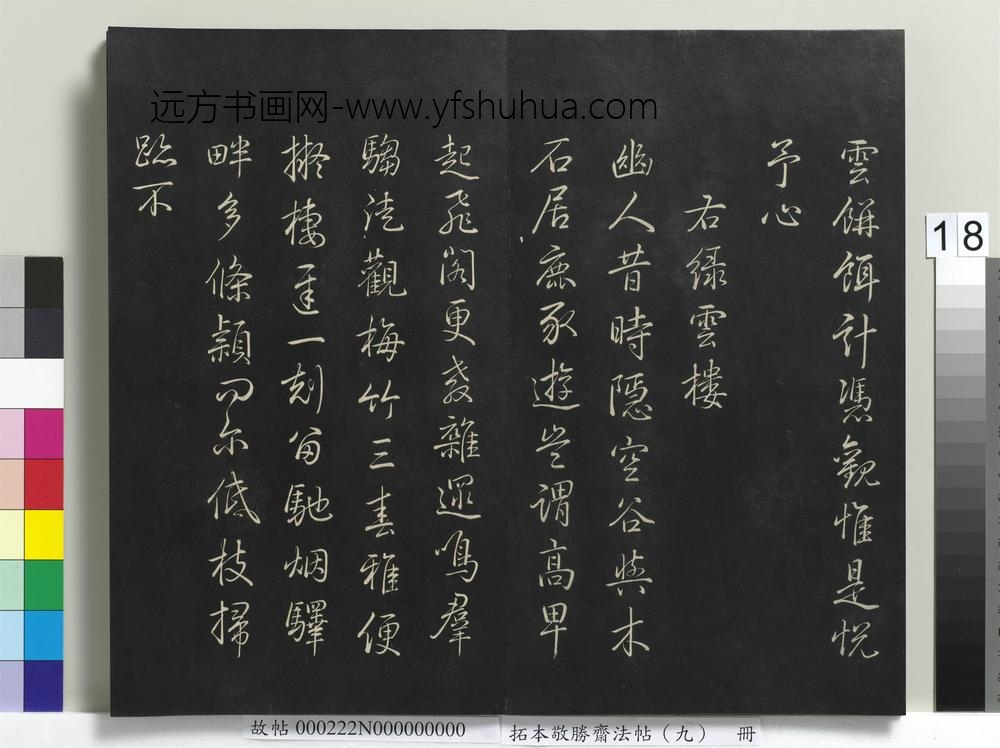 远方书画网-www.yfshuhua.com
雲餅餌計憑觀惟是悦
予心
右緑雲樓
幽人昔時隱空谷與木
石居鹿豕遊豈謂高卑
起飛閣更教雜遝鳴羣
騶漫觀梅竹三春雅便
擬棲遲一刻留馳烟驛
畔多條穎同尔低枝掃
跡不
18
故帖 000222N000000000
拓本敬勝齋法帖（九） 冊